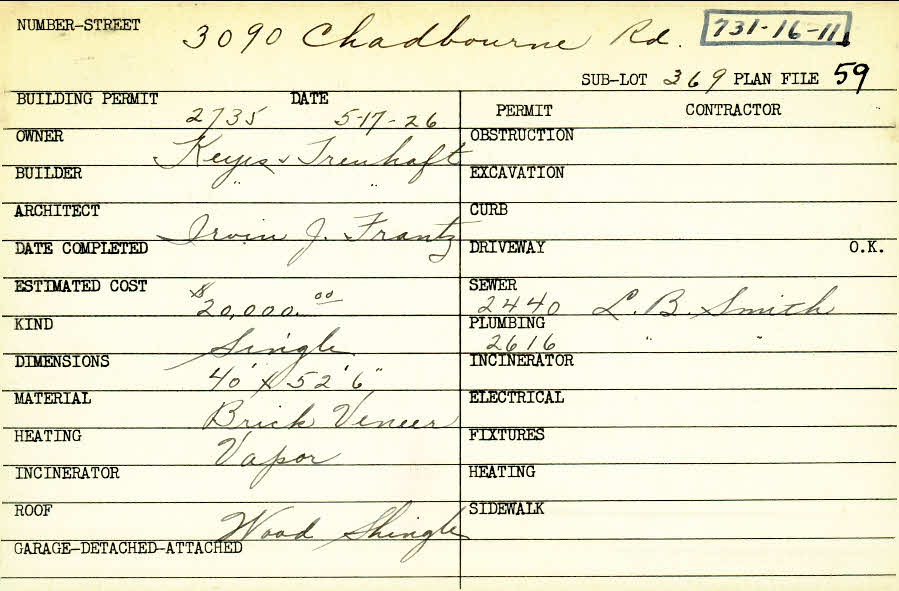 NUMBER-STREET 3090 Chadbourne Rd. 731-16-11
SUB-LOT 369 PLAN FILE 59
BUILDING PERMIT 2735 DATE 5-17-26
PERMIT CONTRACTOR
OWNER Keyes & Treuhaft
OBSTRUCTION
BUILDER " "
EXCAVATION
ARCHITECT Irvin J. Frantz
CURB
DATE COMPLETED
DRIVEWAY O.K.
ESTIMATED COST $20,000.00
SEWER 2440 L. B. Smith
KIND Single
PLUMBING 2616 " "
DIMENSIONS 40' X 52' 6"
INCINERATOR
MATERIAL Brick Veneer
ELECTRICAL
HEATING Vapor
FIXTURES
INCINERATOR
HEATING
ROOF Wood Shingle
SIDEWALK
GARAGE-DETACHED-ATTACHED